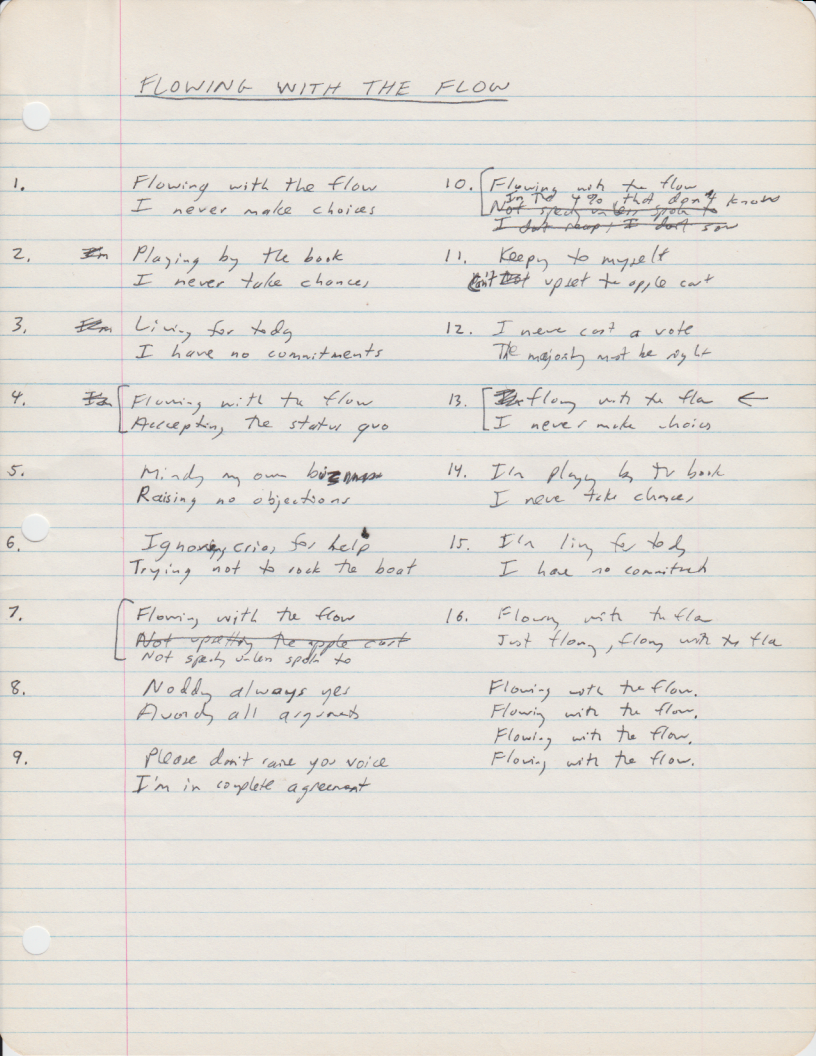 FLOWING WITH THE FLOW
1. Flowing with the flow
I never make choices
2. I'm Playing by the book
I never take chances
3. I'm Living for today
I have no commitments
4. I'm Flowing with the flow
Accepting the status quo
5. Minding my own
Raising no objections
6. Ignoring cries for help
Trying not to rock the boat
7. Flowing with the flow
Not upsetting the apple cart
Not speaking unless spoken to
8. Nodding always yes
Avoiding all arguments
9. Please don't raise your voice
I'm in complete agreement
10. Flowing with the flow
In the 4% that don't know
Not speaking unless spoken to
I don't reap, I don't sow
11. Keeping to myself
Don't upset the apple cart
12. I never cast a vote
The majority must be right
13. flowing with the flow ←
I never make choices
14. I'm playing by the book
I never take chances
15. I'm living for today
I have no commitments
16. Flowing with the flow
Just flowing, flowing with the flow
Flowing with the flow.
Flowing with the flow.
Flowing with the flow.
Flowing with the flow.